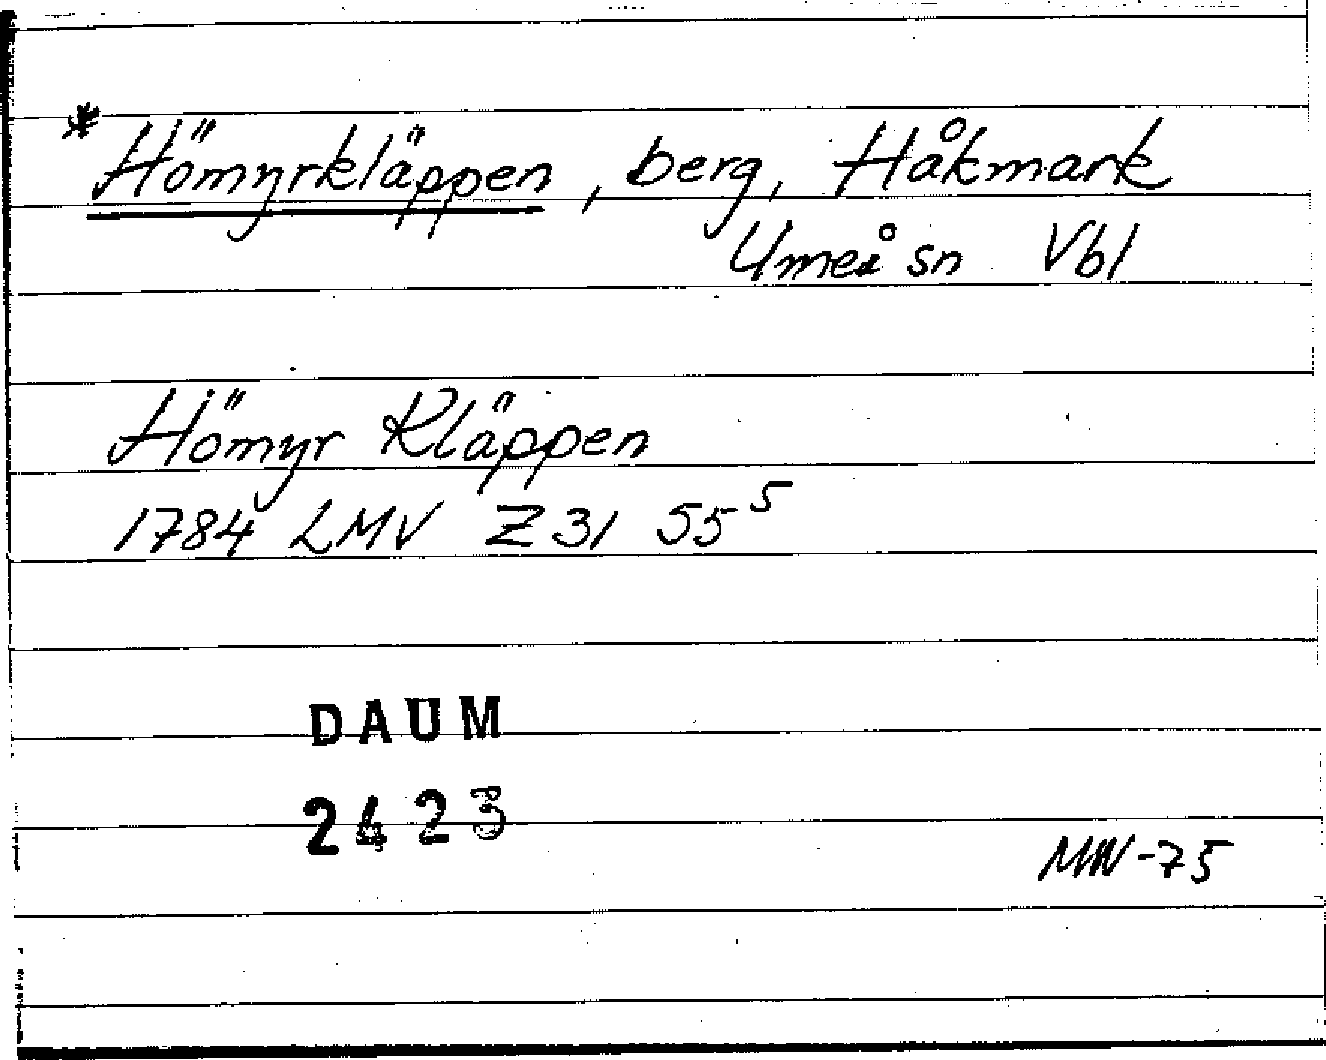 * Hömyrkläppen, berg, Håkmark
Umeå sn Vbl
Hömyr Kläppen
1784 LMV Z 31 55⁵
DAUM
2423
MW-75